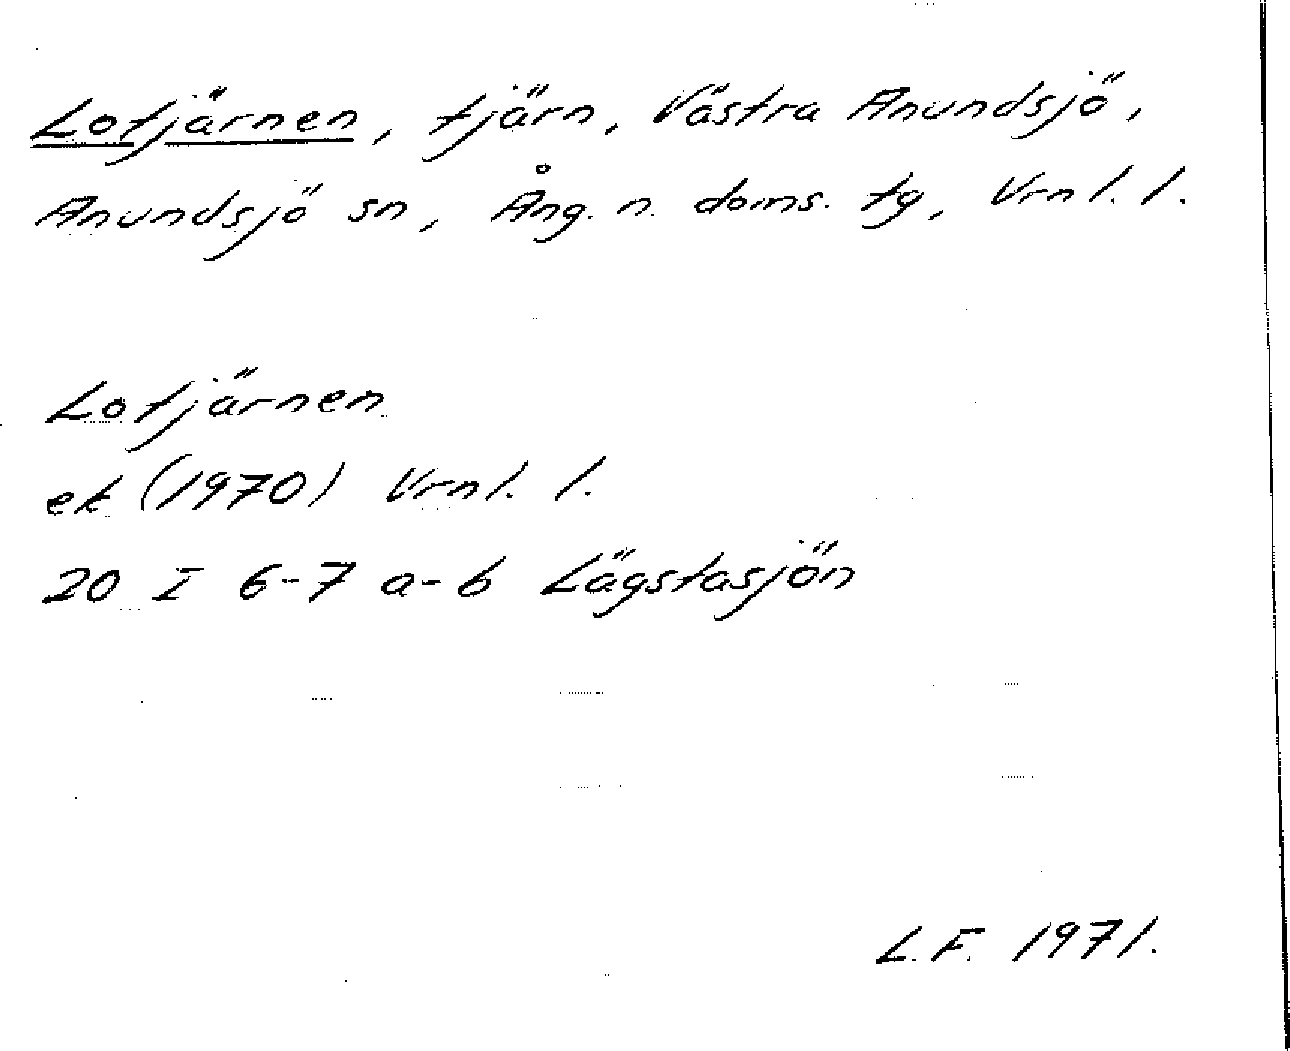 Lotjärnen, tjärn, Västra Anundsjö,
Anundsjö sn, Ång. n. doms. tg, Vrnl. l.
Lotjärnen
ek (1970) Vrnl. l.
20 I 6-7 a-b Lägstasjön
L.F. 1971.